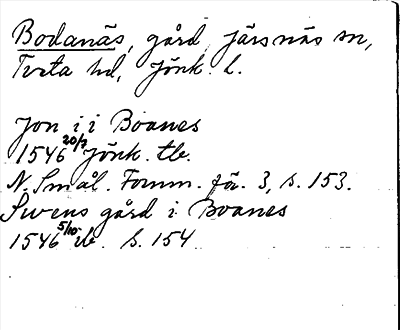 Bodanäs, gård, Järsnäs sn,
Tveta hd, Jönk. l.
Jon i i Boanes
1546 20/7 Jönk. tb.
N. Smål. Fornm. för. 3, s. 153.
Swens gård i Boanes
1546 5/10 ib. s. 154